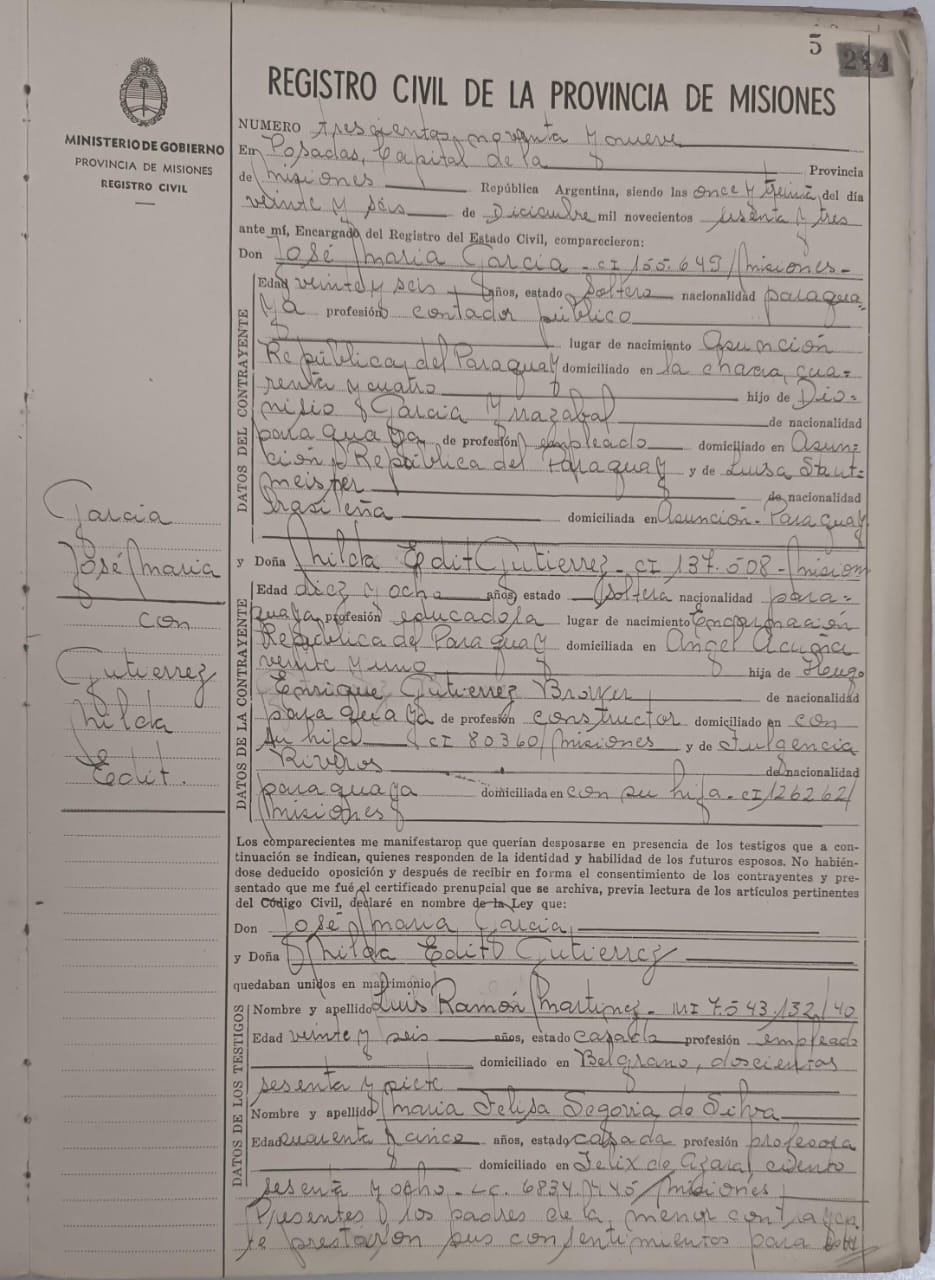 5
244
MINISTERIO DE GOBIERNO
PROVINCIA DE MISIONES
REGISTRO CIVIL
REGISTRO CIVIL DE LA PROVINCIA DE MISIONES
NUMERO trescientos noventa y nueve
En Posadas, Capital de la Provincia
de misiones República Argentina, siendo las once y treinta del día
veinte y seis de Diciembre mil novecientos sesenta y tres
ante mí, Encargado del Registro del Estado Civil, comparecieron:
DATOS DEL CONTRAYENTE
Don José Maria Garcia - CI 155.649/misiones-
Edad veinte y seis años, estado soltero nacionalidad paragua-
ya profesión contador público
lugar de nacimiento Asunción
República del Paraguay domiciliado en la chacra, cua-
renta y cuatro hijo de Dio-
nisio Garcia Yrrazabal de nacionalidad
paraguaya de profesión empleado domiciliado en Asun-
ción República del Paraguay y de Luisa Staut-
meister de nacionalidad
brasileña domiciliada en Asunción - Paraguay
Garcia
José Maria
con
Gutierrez
hilda
Edit.
DATOS DE LA CONTRAYENTE
y Doña hilda Edit Gutierrez - CI 137.508 - mision
Edad diez y ocho años, estado soltera nacionalidad para-
guaya profesión educadora lugar de nacimiento Encarnación
República del Paraguay domiciliada en Angel Acuña
veinte y uno hija de Hugo
Enrique Gutierrez de nacionalidad
paraguaya de profesión constructor domiciliado en con
su hija CI 80360/misiones y de Fulgencia
Riveros de nacionalidad
paraguaya domiciliada en con su hija - CI 126262/
misiones
Los comparecientes me manifestaron que querían desposarse en presencia de los testigos que a con-
tinuación se indican, quienes responden de la identidad y habilidad de los futuros esposos. No habién-
dose deducido oposición y después de recibir en forma el consentimiento de los contrayentes y pre-
sentado que me fué el certificado prenupcial que se archiva, previa lectura de los artículos pertinentes
del Código Civil, declaré en nombre de la Ley que:
Don José Maria Garcia
y Doña hilda Edit Gutierrez
quedaban unidos en matrimonio
DATOS DE LOS TESTIGOS
Nombre y apellido Luis Ramón Martinez - MI 7.543/132/40
Edad veinte y seis años, estado casado profesión empleado
domiciliado en Belgrano, doscientos
sesenta y siete
Nombre y apellido maria Felisa Segovia de Silva
Edad cuarenta y cinco años, estado casada profesión profesora
domiciliado en Felix de Azara, ciento
sesenta y ocho - LC. 6834.745/misiones
Presentes los padres de la menor contrayen
te prestaron sus consentimientos para